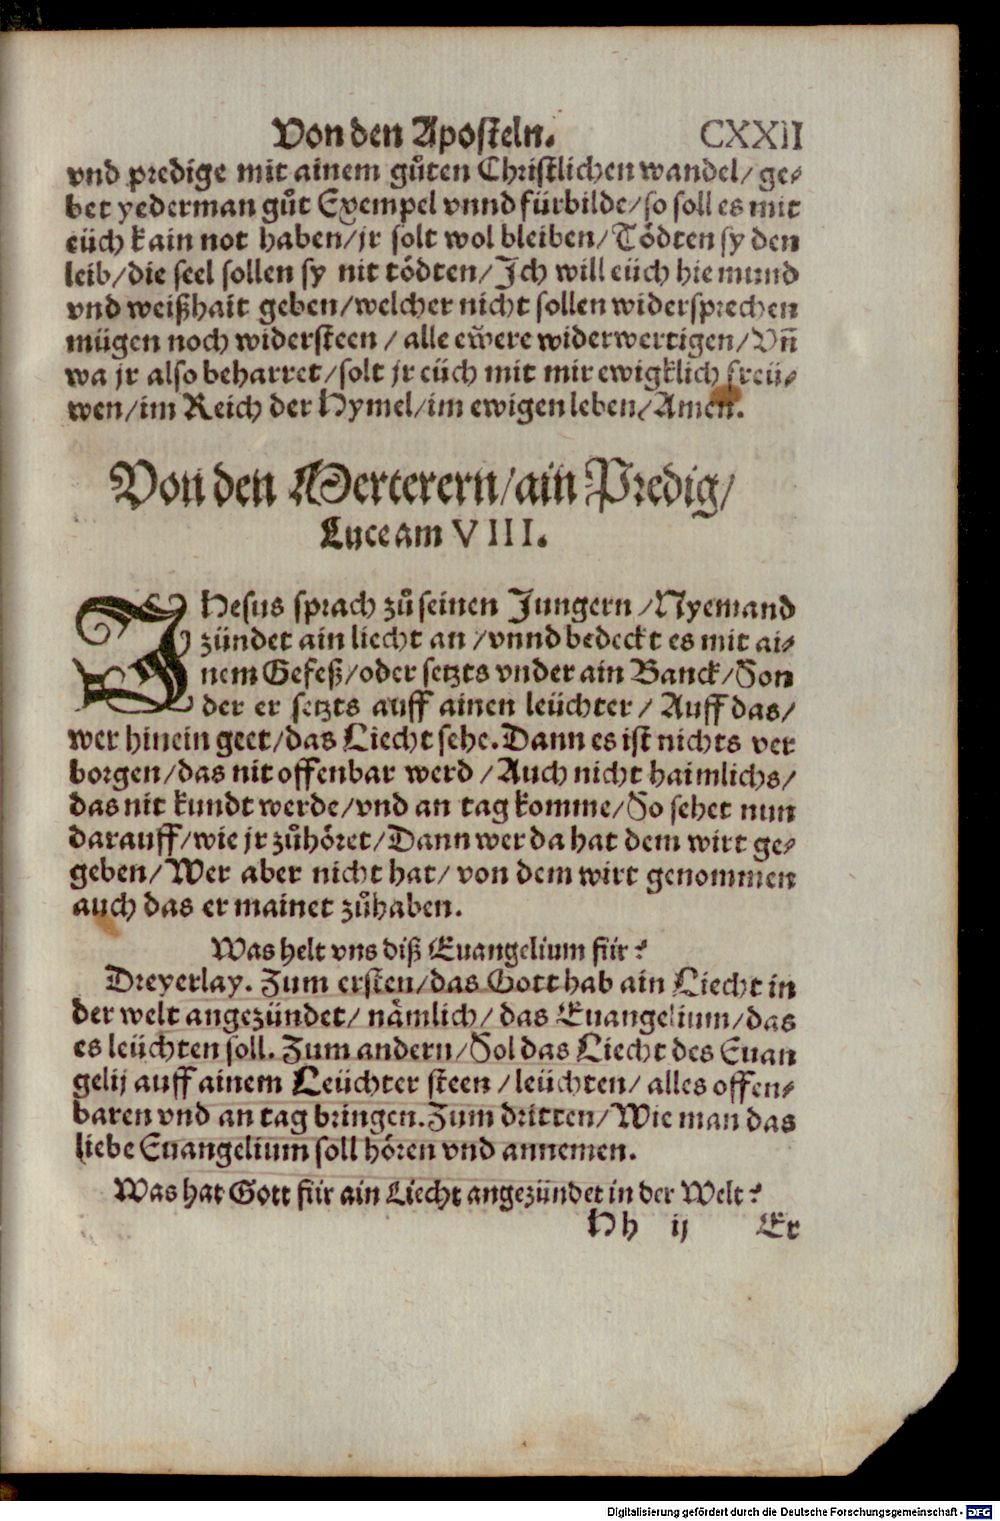 Von den Aposteln. CXXII
vnd predige mit ainem gůten Christlichen wandel/ ge-
bet yederman gůt Exempel vnnd fürbilde/ so soll es mit
eüch kain not haben/ jr solt wol bleiben/ Tödten sy den
leib/ die seel sollen sy nit tödten/ Ich will eüch hie mund
vnd weißhait geben/ welcher nicht sollen widersprechen
mügen noch widersteen / alle ewere widerwertigen/ Vñ
wa jr also beharret/ solt jr eüch mit mir ewigklich freü-
wen/ im Reich der Hymel/ im ewigen leben/ Amen.
Von den Merterern/ ain Predig/
Luce am VIII.
IHesus sprach zů seinen Jungern / Nyemand
zündet ain liecht an / vnnd bedeckt es mit ai-
nem Gefeß/ oder setzts vnder ain Banck/ Son
der er setzts auff ainen leüchter/ Auff das/
wer hinein geet/ das Liecht sehe. Dann es ist nichts ver
borgen/ das nit offenbar werd / Auch nicht haimlichs/
das nit kundt werde/ vnd an tag komme/ So sehet nun
darauff/ wie jr zůhöret/ Dann wer da hat dem wirt ge-
geben/ Wer aber nicht hat/ von dem wirt genommen
auch das er mainet zůhaben.
Was helt vns diß Euangelium für?
Dreyerlay. Zum ersten/ das Gott hab ain Liecht in
der welt angezündet/ nämlich/ das Euangelium/ das
es leüchten soll. Zum andern/ Sol das Liecht des Euan
gelij auff ainem Leüchter steen / leüchten/ alles offen-
baren vnd an tag bringen. Zum dritten/ Wie man das
liebe Euangelium soll hören vnd annemen.
Was hat Gott für ain Liecht angezündet in der Welt?
Hh ij Er
Digitalisierung gefördert durch die Deutsche Forschungsgemeinschaft - DFG